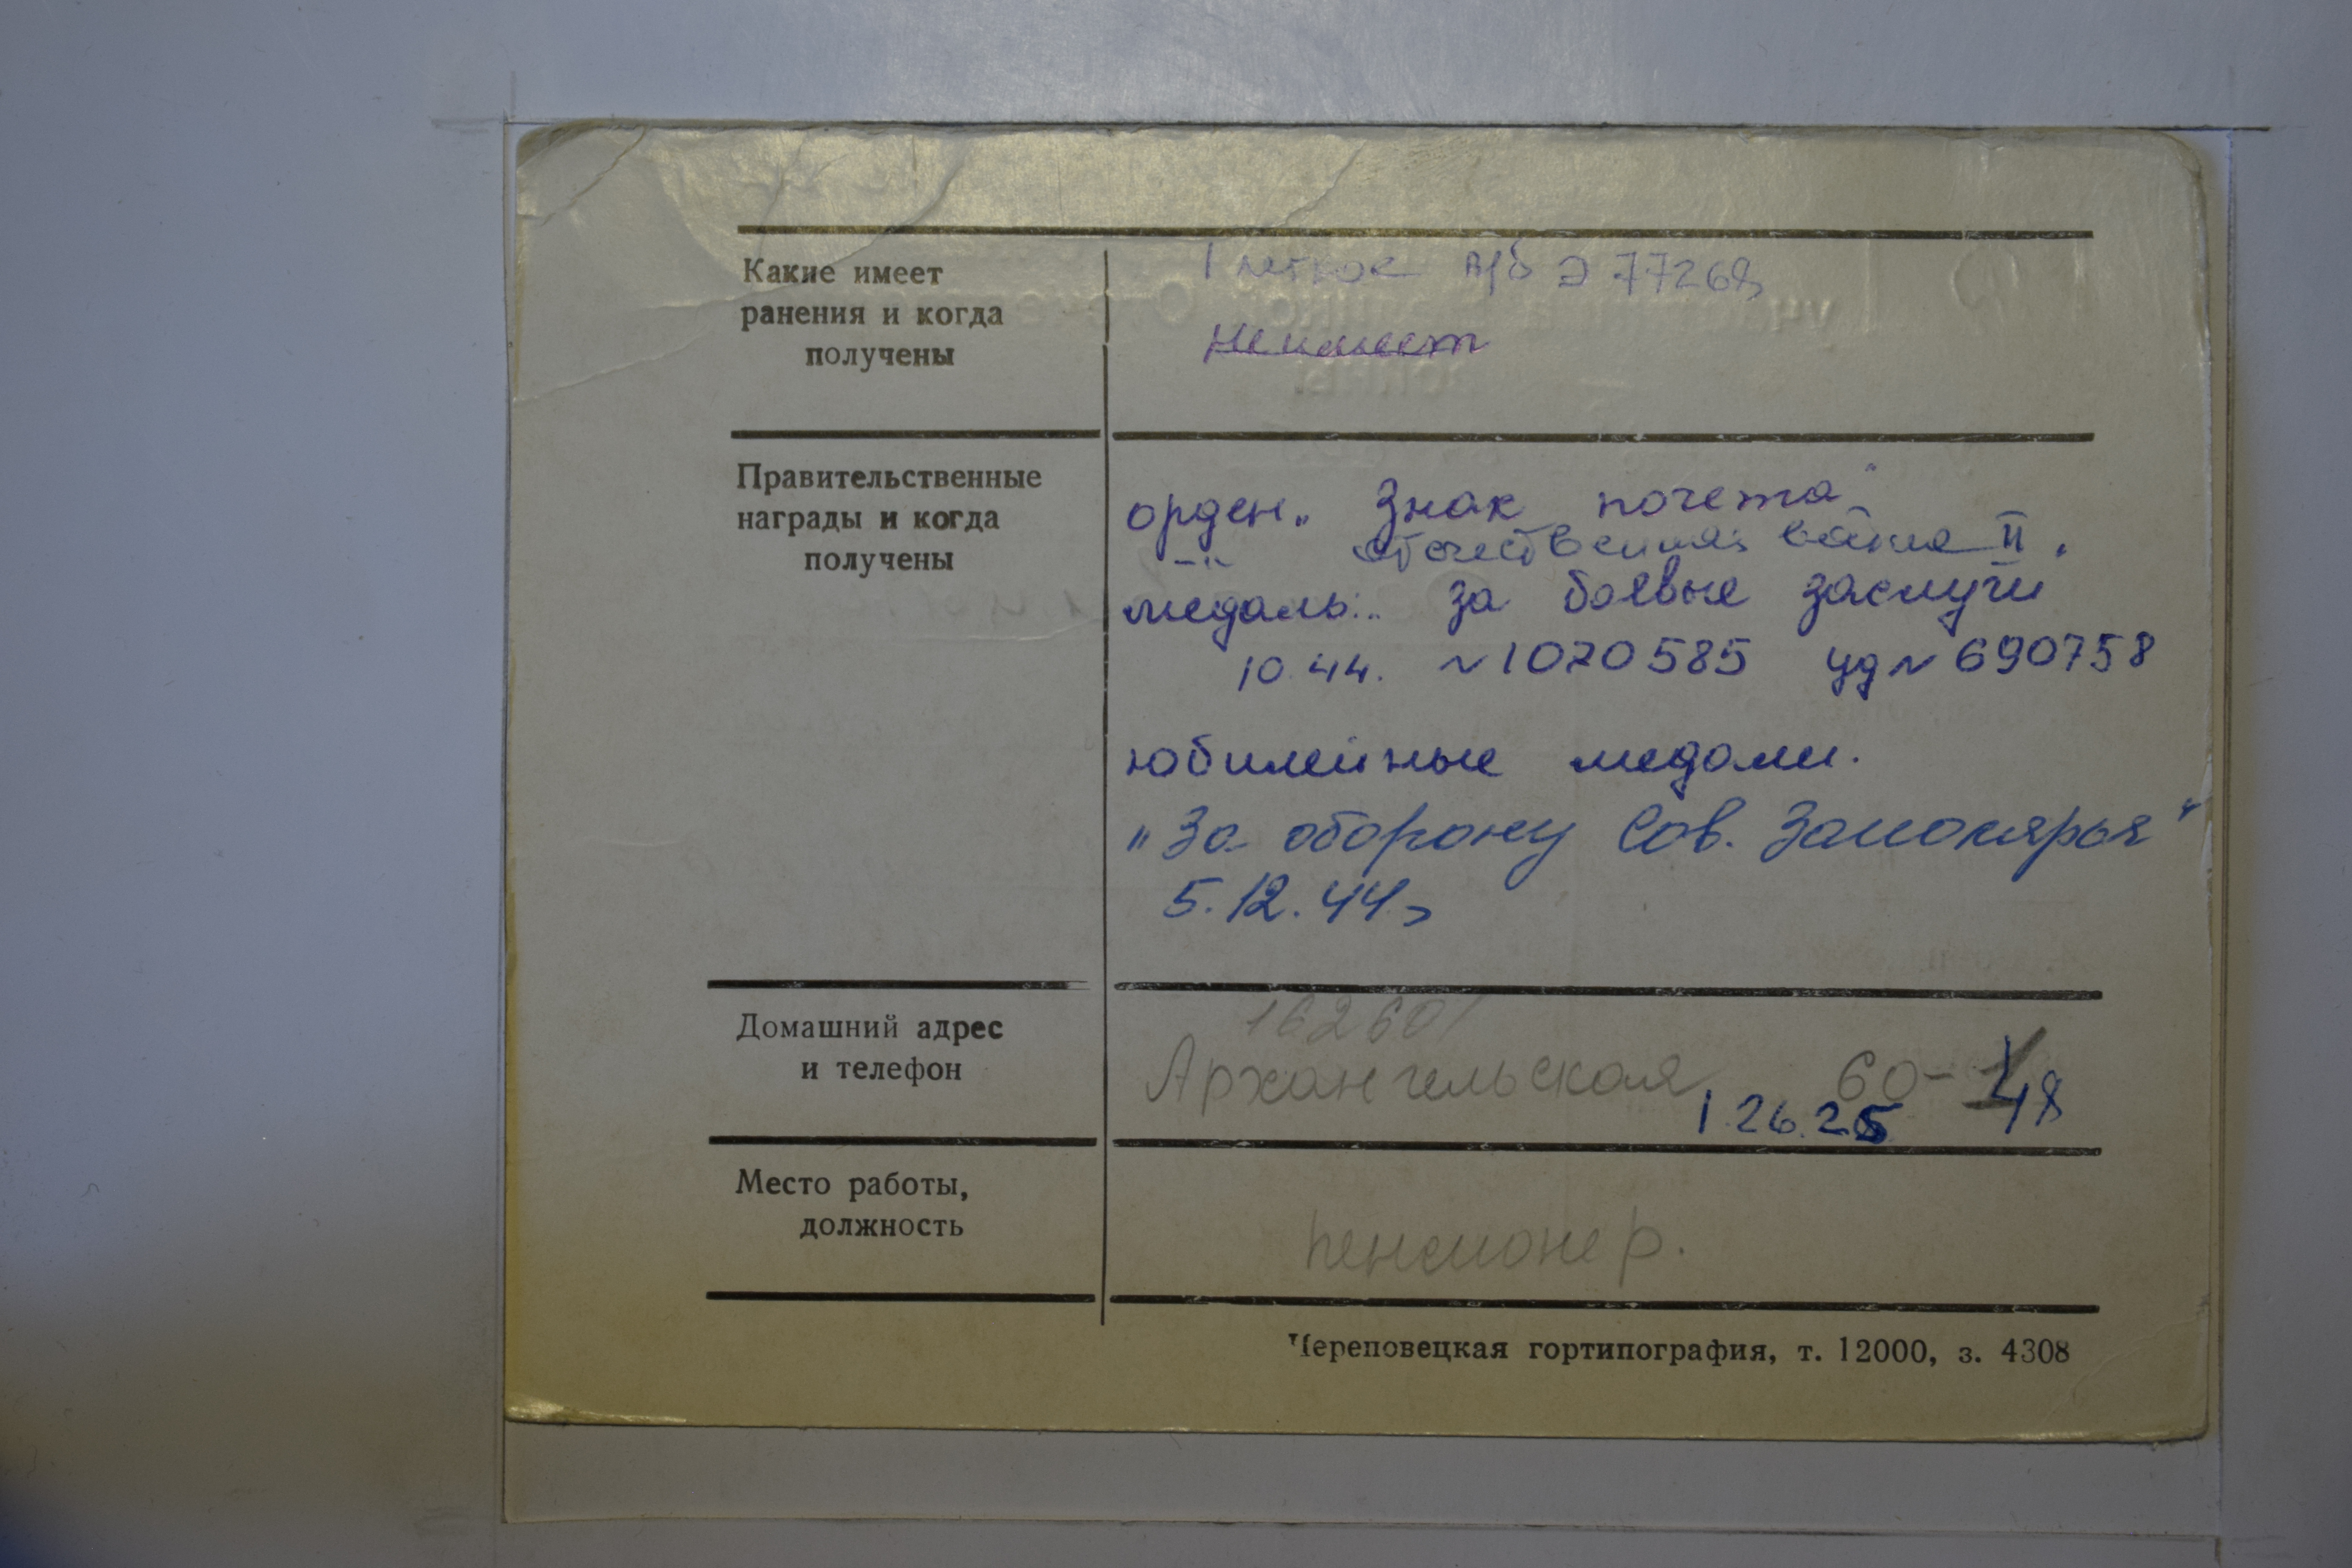 Какие имеет
ранения и когда
получены
1 легкое в/б Э 77268
не имеет
Правительственные
награды и когда
получены
орден „ Знак почета "
-"- отечественная война II .
медаль: „ за боевые заслуги
10.44. N 1070585 уд N 690758
юбилейные медали.
„За оборону Сов. Заполярья"
5.12.44 г
Домашний адрес
и телефон
162601
Архангельская 60- 48
1.26.25
Место работы,
должность
пенсионер.
Череповецкая гортипография, т. 12000, з. 4308